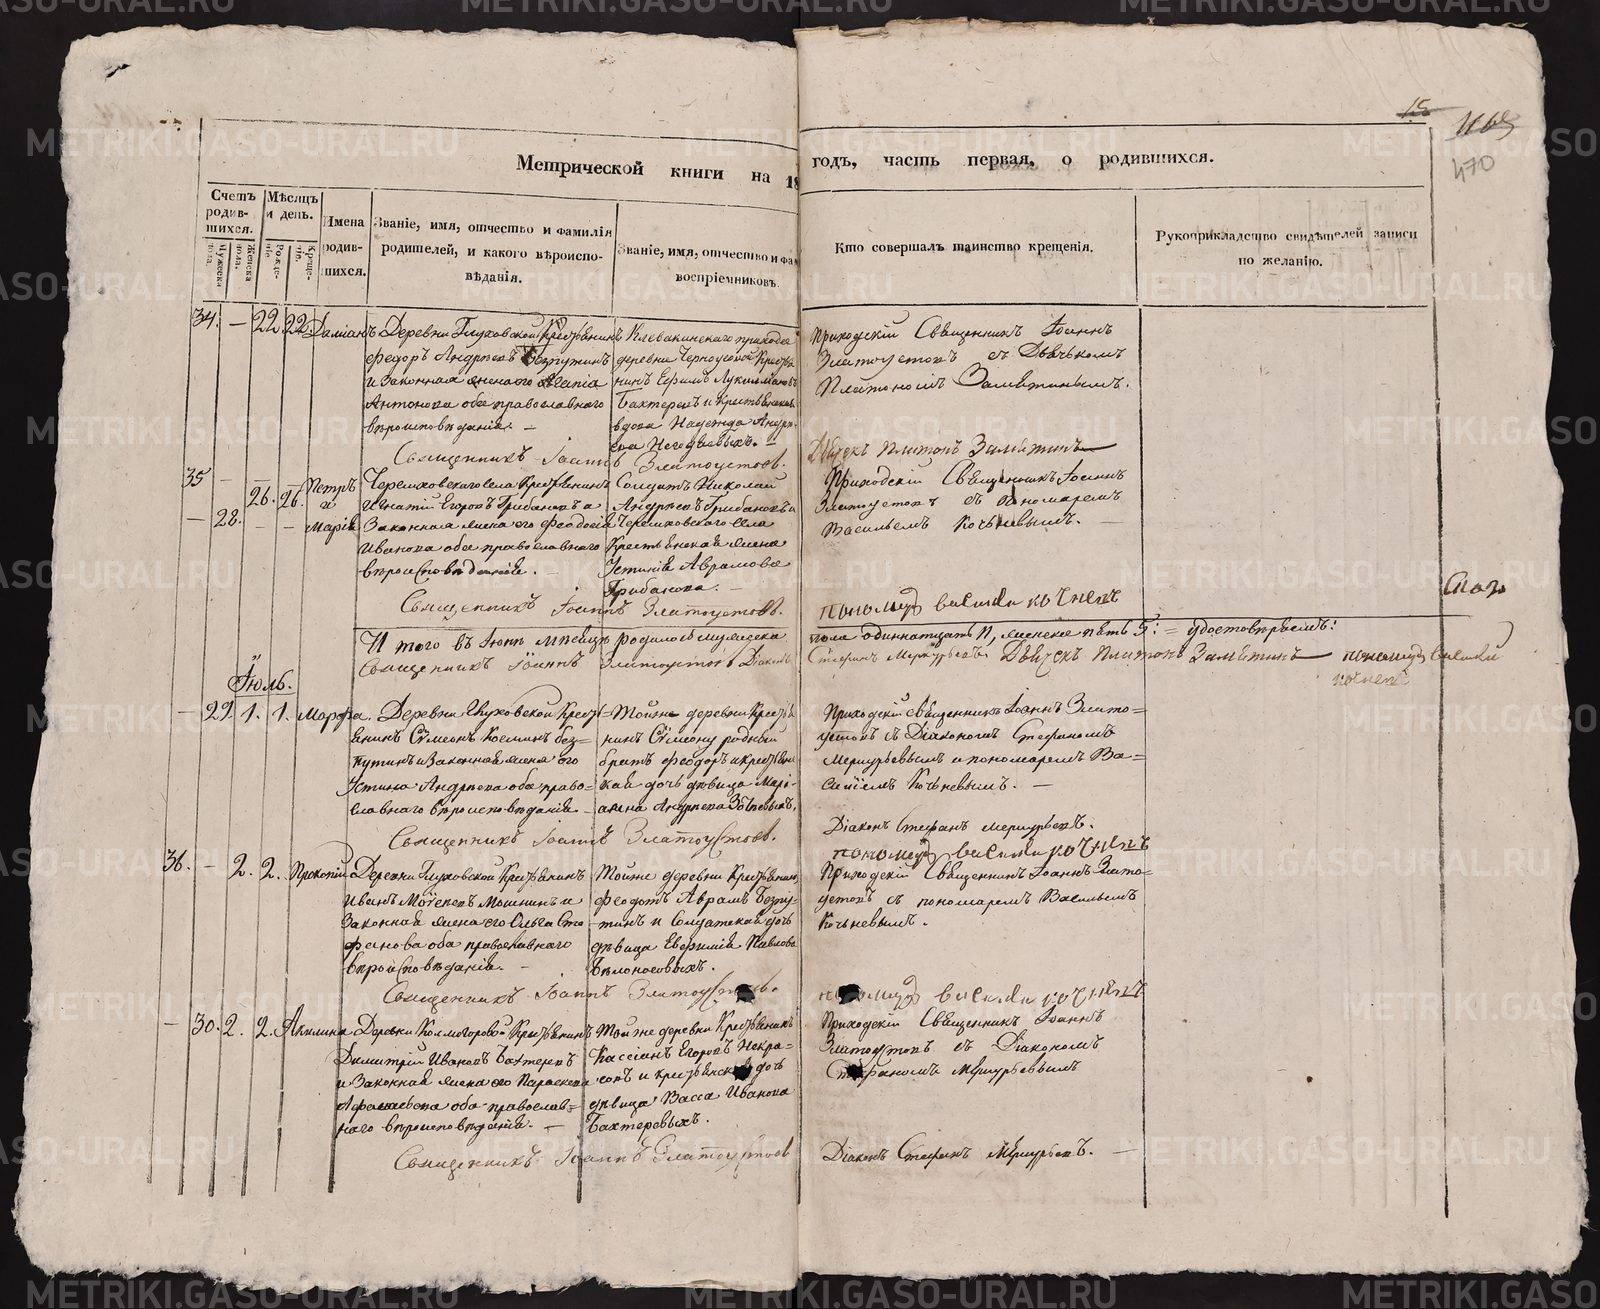 15
1165
470
Метрической книги на 18 годъ, часть первая, о родившихся.
Счетъ родив-шихся.
Мужеска пола.
Женска пола.
Мѣсяцъ и день.
Рожде-нія.
Креще-нія.
Имена родив-шихся.
Званіе, имя, отчество и фамилія
родителей, и какого вѣроиспо-
вѣданія.
Званіе, имя, отчество и фам
воспріемниковъ.
Кто совершалъ таинство крещенія.
Рукоприкладство свидѣтелей записи
по желанію.
34. — 22 22 Даміанъ
Деревни Глуховской Крестьянинъ
Феодоръ Андреевъ Безпутинъ
и Законная жена его Агапіа
Антонова оба православнаго
вѣроисповѣданія. —
Клевакинскаго прихода
деревни Черноусовой Крестья
нинъ Ефимъ Лукіяновъ
Бахтеревъ и крестьянская
вдова Надежда Андре-
ева Негодяевыхъ. —
Приходскій Священникъ Іоаннъ
Златоустовъ съ Дьячькомъ
Платономъ Замятинымъ.
Священникъ Іоаннъ Златоустовъ.
Дьячекъ Платонъ Замятинъ
35 —
— 28.
26. 26.
— —
Петръ
и
Марія
Черемховскаго села Крестьянинъ
Игнатій Егоровъ Грибановъ а
Законная жена его Феодосія
Иванова оба православнаго
вѣроисповѣданія. —
Солдатъ Николай
Андреевъ Грибановъ и
Черемховскаго села
Крестьянская жена
Устинія Аврамова
Грибанова. —
Приходскій Священникъ Іоаннъ
Златоустовъ съ Пономаремъ
Васильемъ Кочневымъ. —
Священникъ Іоаннъ Златоустовъ.
пономарь василей кочневъ
И того въ Іюнѣ мѣсяцѣ родилось мужеска пола одиннатцать 11, женска пять 5: = удостовѣряемъ:
Священникъ Іоаннъ Златоустовъ Діаконъ Стефанъ Меркурьевъ Дьячекъ Платонъ Замятинъ пономарь василей
кочневъ
Іюль.
— 29. 1. 1. Марфа.
Деревни Глуховской Кресть-
янинъ Сѵмеонъ Косминъ Без-
путинъ и Законная жена его
Устина Андреева оба право-
славнаго вѣроисповѣданія. —
Тойже деревни Крестья
нинъ Сѵмеону родный
братъ Феодоръ и крестьянс
кая дочь дѣвица Марі-
амна Андреева
Приходскій Священникъ Іоаннъ Злато=
устовъ съ Діакономъ Стефаномъ
Меркурьевымъ и пономаремъ Ва=
силіемъ Кочьневымъ. —
Священникъ Іоаннъ Златоустовъ.
Діаконъ Стефанъ Меркурьевъ.
пономарь василей кочневъ
36. — 2. 2. Прокопій
Деревни Глуховской Крестьянинъ
Иванъ Моѵсеевъ Мошнинъ и
Законная жена его Ольга Сте
фанова оба православнаго
вѣроисповѣданія. —
Тойже деревни Крестьянинъ
Феодотъ Аврамъ Безпу-
тинъ и Солдатская дочь
дѣвица Евфимія Павлова
Бѣлоносовыхъ.
Приходскій Священникъ Іоаннъ Злато=
устовъ съ пономаремъ Васильемъ
Кочьневымъ.
Священникъ Іоаннъ Златоустовъ.
пономарь василей кочневъ
— 30. 2. 2. Акилина
Деревни Колмогоровой Крестьянинъ
Димитрій Ивановъ Бахтеревъ
и Законная жена его Параскева
Афанасьева оба православ=
наго вѣроисповѣданія. —
Тойже деревни Крестьянинъ
Кассіанъ Егоровъ Некра=
совъ и крестьянская дочь
дѣвица Васса Иванова
Бахтеревыхъ.
Приходскій Священникъ Іоаннъ
Златоустовъ съ Діакономъ
Стефаномъ Меркурьевымъ
Священникъ Іоаннъ Златоустовъ
Діаконъ Стефанъ Меркурьевъ. —
METRIKI.GASO-URAL.RU